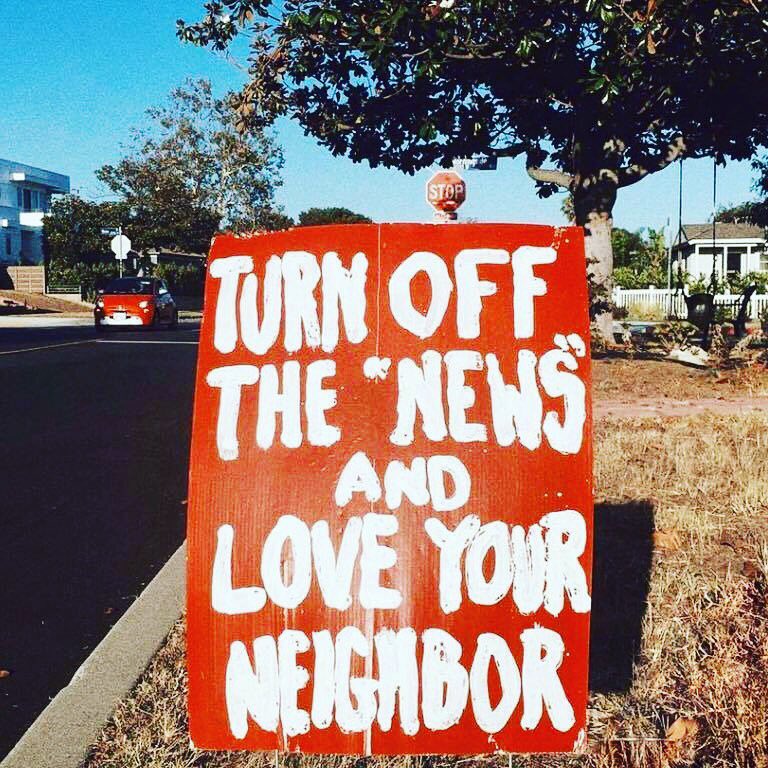 STOP
TURN OFF
THE "NEWS"
AND
LOVE YOUR
NEIGHBOR